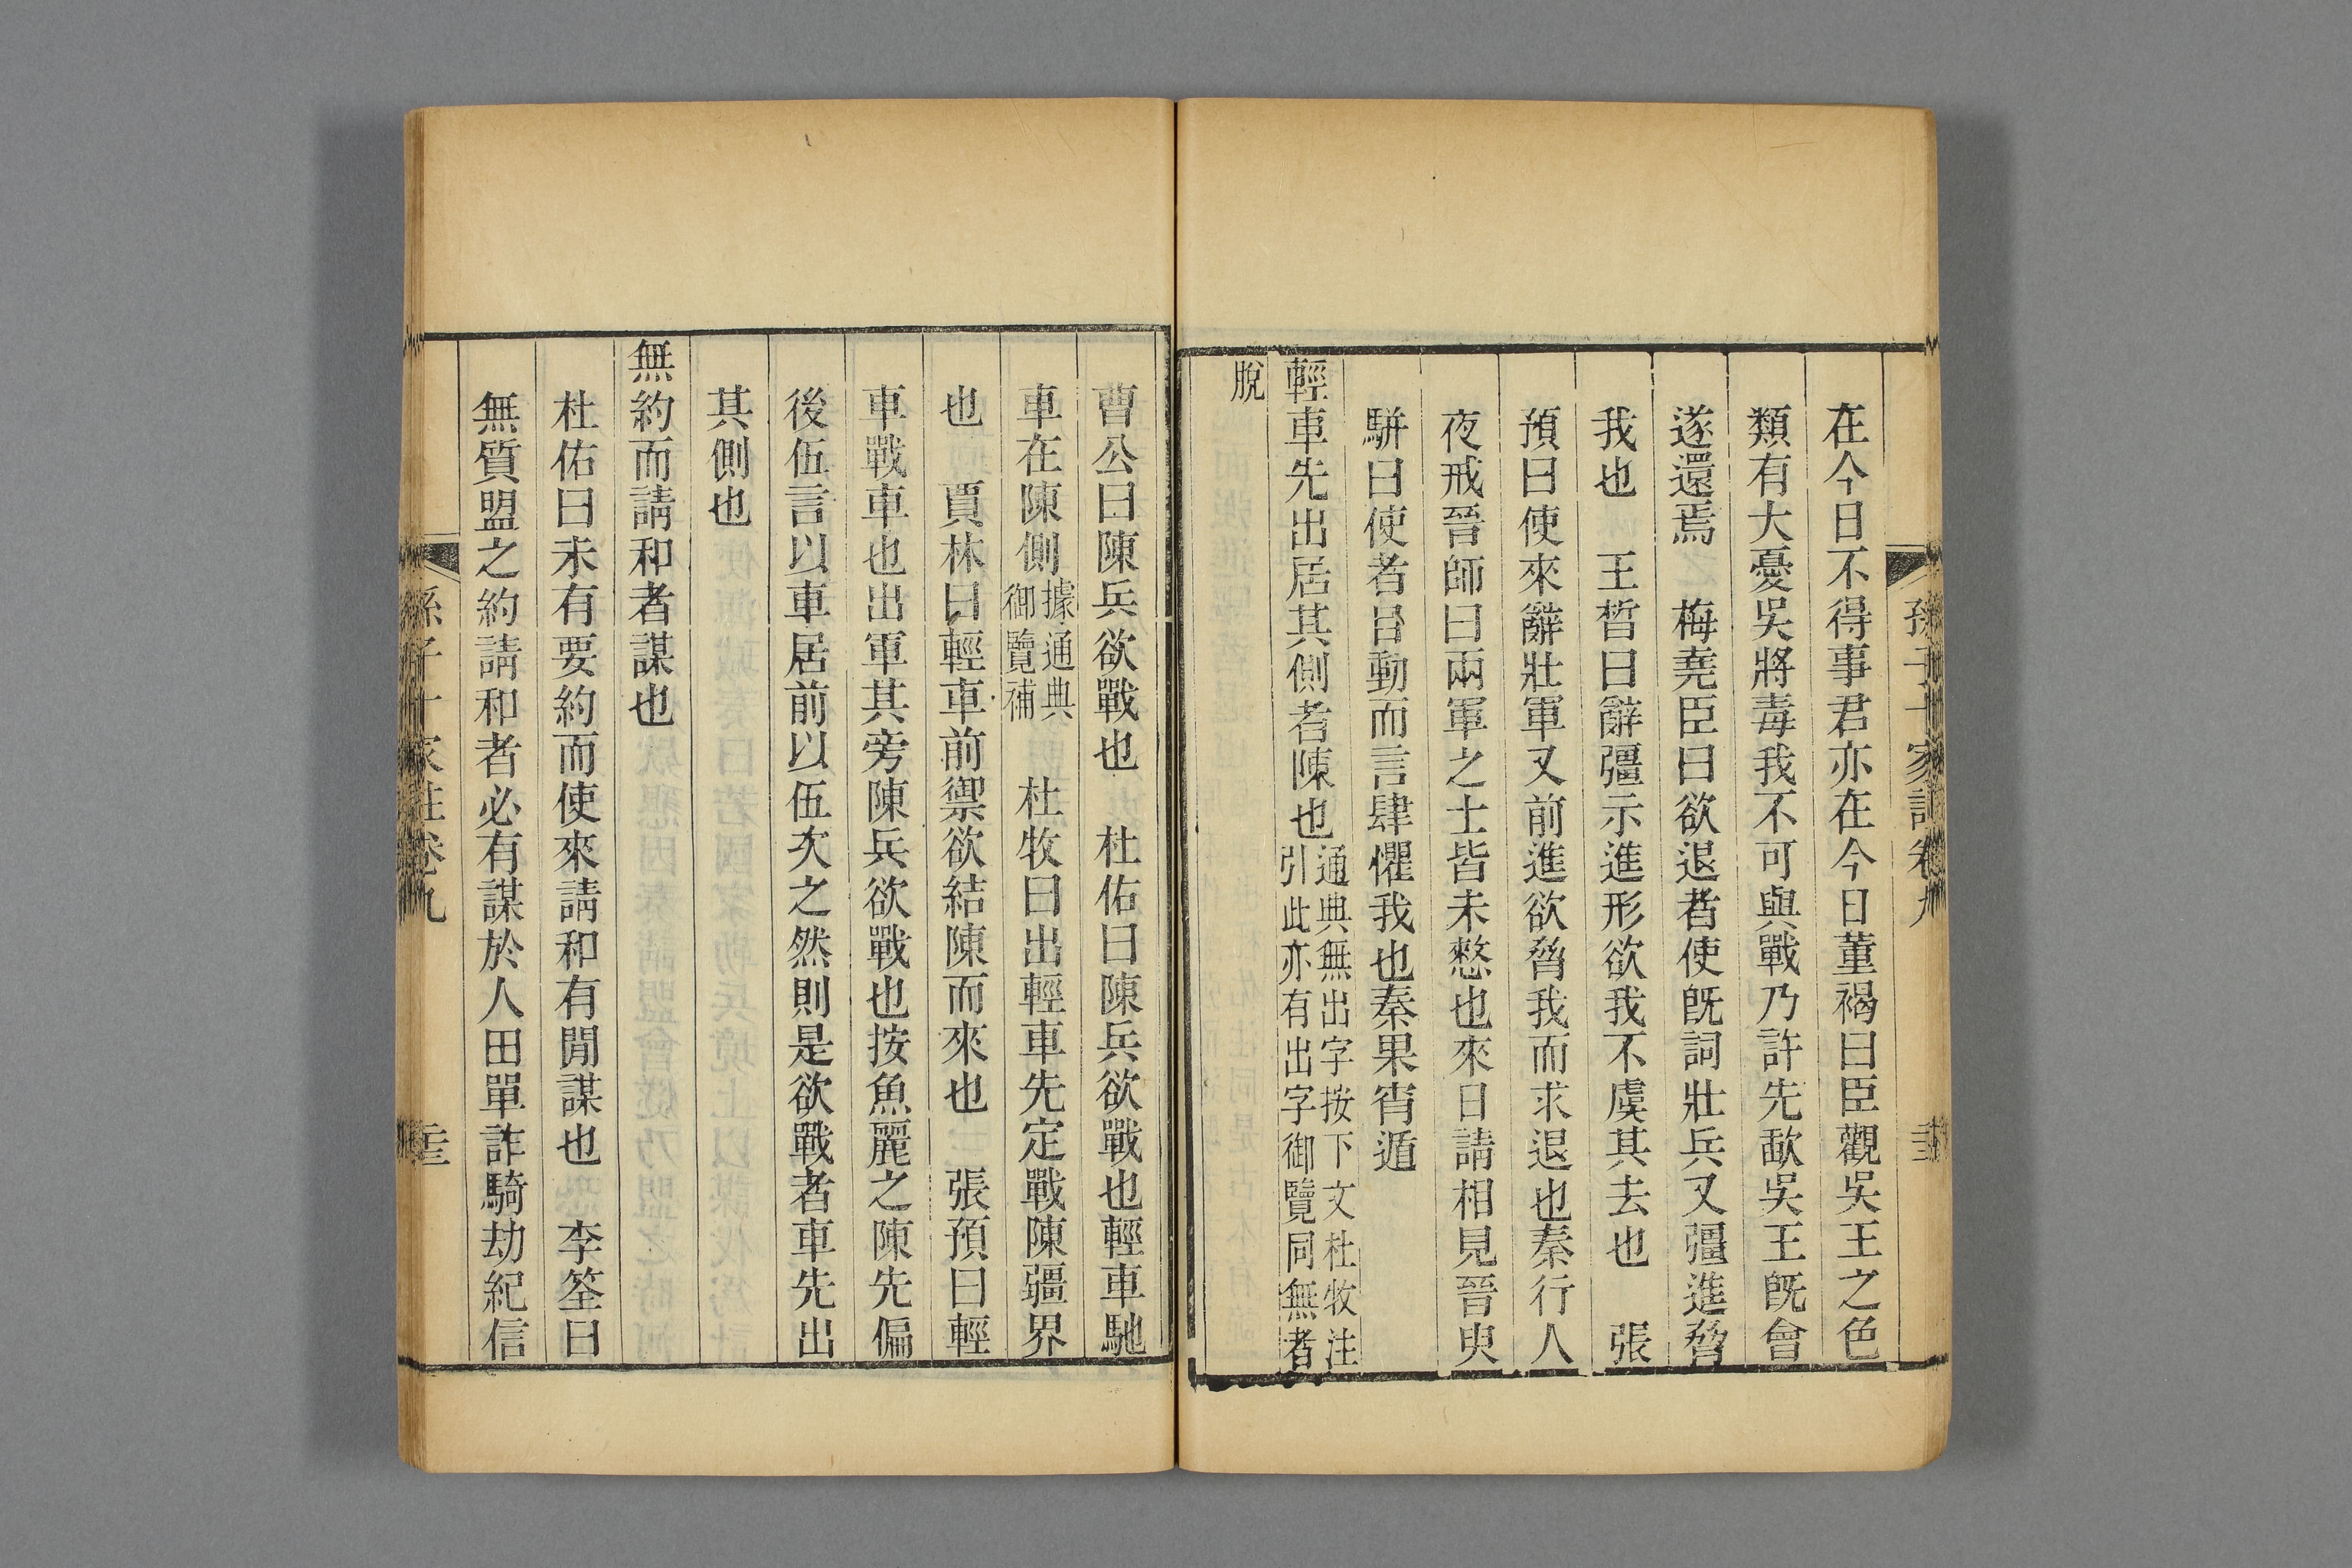 孫子十家註卷九
在今日不得事君亦在今日董褐曰臣觀吳王之色
類有大憂吳將毒我不可與戰乃許先歃吳王既會
遂還焉　梅堯臣曰欲退者使既詞壯兵又彊進脅
我也　王晳曰辭彊示進形欲我不虞其去也　張
預曰使來辭壯軍又前進欲脅我而求退也秦行人
夜戒晉師曰兩軍之士皆未憖也來日請相見晉臾
駢曰使者目動而言肆懼我也秦果宵遁
輕車先出居其側者陳也通典無出字按下文杜牧注
引此亦有出字御覽同無者
脫
曹公曰陳兵欲戰也　杜佑曰陳兵欲戰也輕車馳
車在陳側據通典
御覽補　杜牧曰出輕車先定戰陳疆界
也　賈林曰輕車前禦欲結陳而來也　張預曰輕
車戰車也出軍其旁陳兵欲戰也按魚麗之陳先偏
後伍言以車居前以伍次之然則是欲戰者車先出
其側也
無約而請和者謀也
杜佑曰未有要約而使來請和有閒謀也　李筌曰
無質盟之約請和者必有謀於人田單詐騎劫紀信
孫子十家註卷九